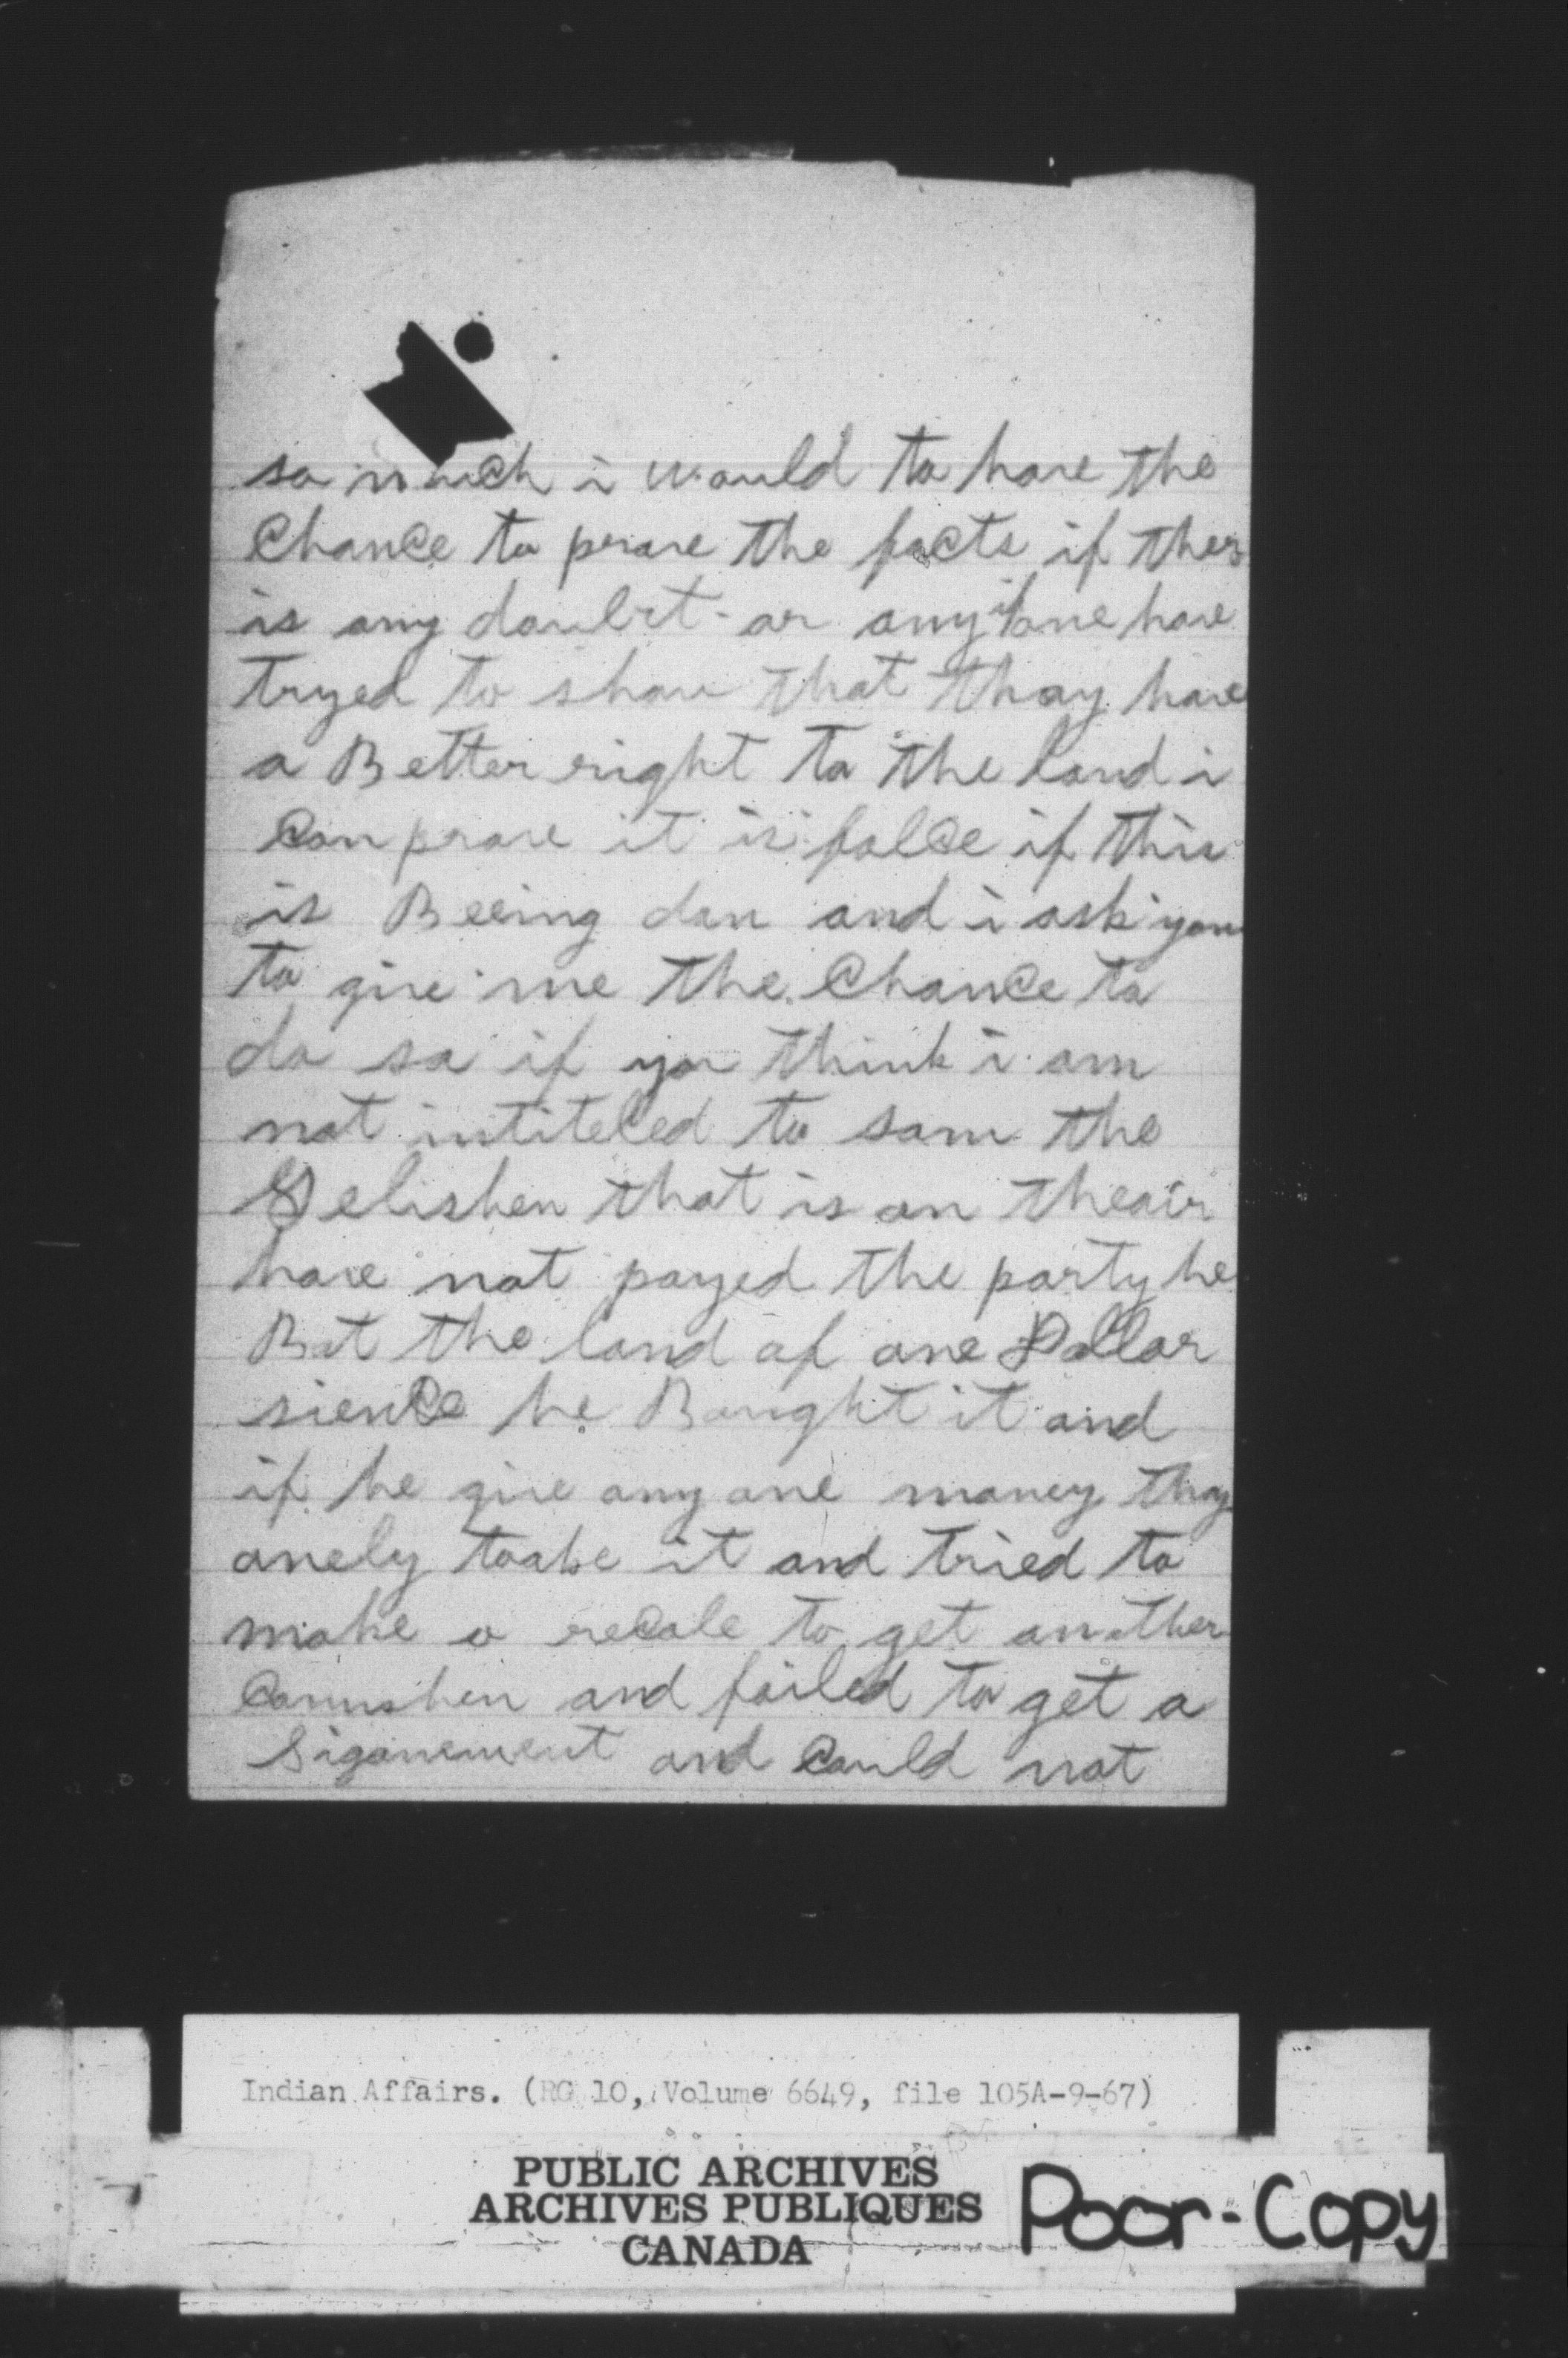 so much i would to have the
Chance to prove the facts if ther
is any doubrt - or any if one have
tryed to show that thay have
a Better right to the land i
Can prove it is falce if this
is Beeing don and i ask you
to give me the Chance to
do so if you think i am
not intiteled to som the
that is on theair
have not payed the party he
Bot the land of one Dollar
sience he Bought it and
if he give any one money thay
onely toake it and tried to
make a recale to get another
and failed to get a
Siganement and Could not
Indian Affairs. (RG 10, Volume 6649, file 105A-9-67)
PUBLIC ARCHIVES
ARCHIVES PUBLIQUES
CANADA
Poor-Copy